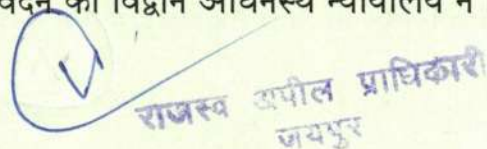 वेदन को विद्वान अधिनस्थ न्यायालय ने
राजस्व अपील प्राधिकारी
जयपुर